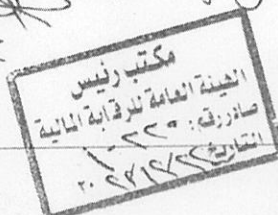 مكتب رئيس
الهيئة العامة للرقابة المالية
صادر رقم:
التاريخ
٢٠